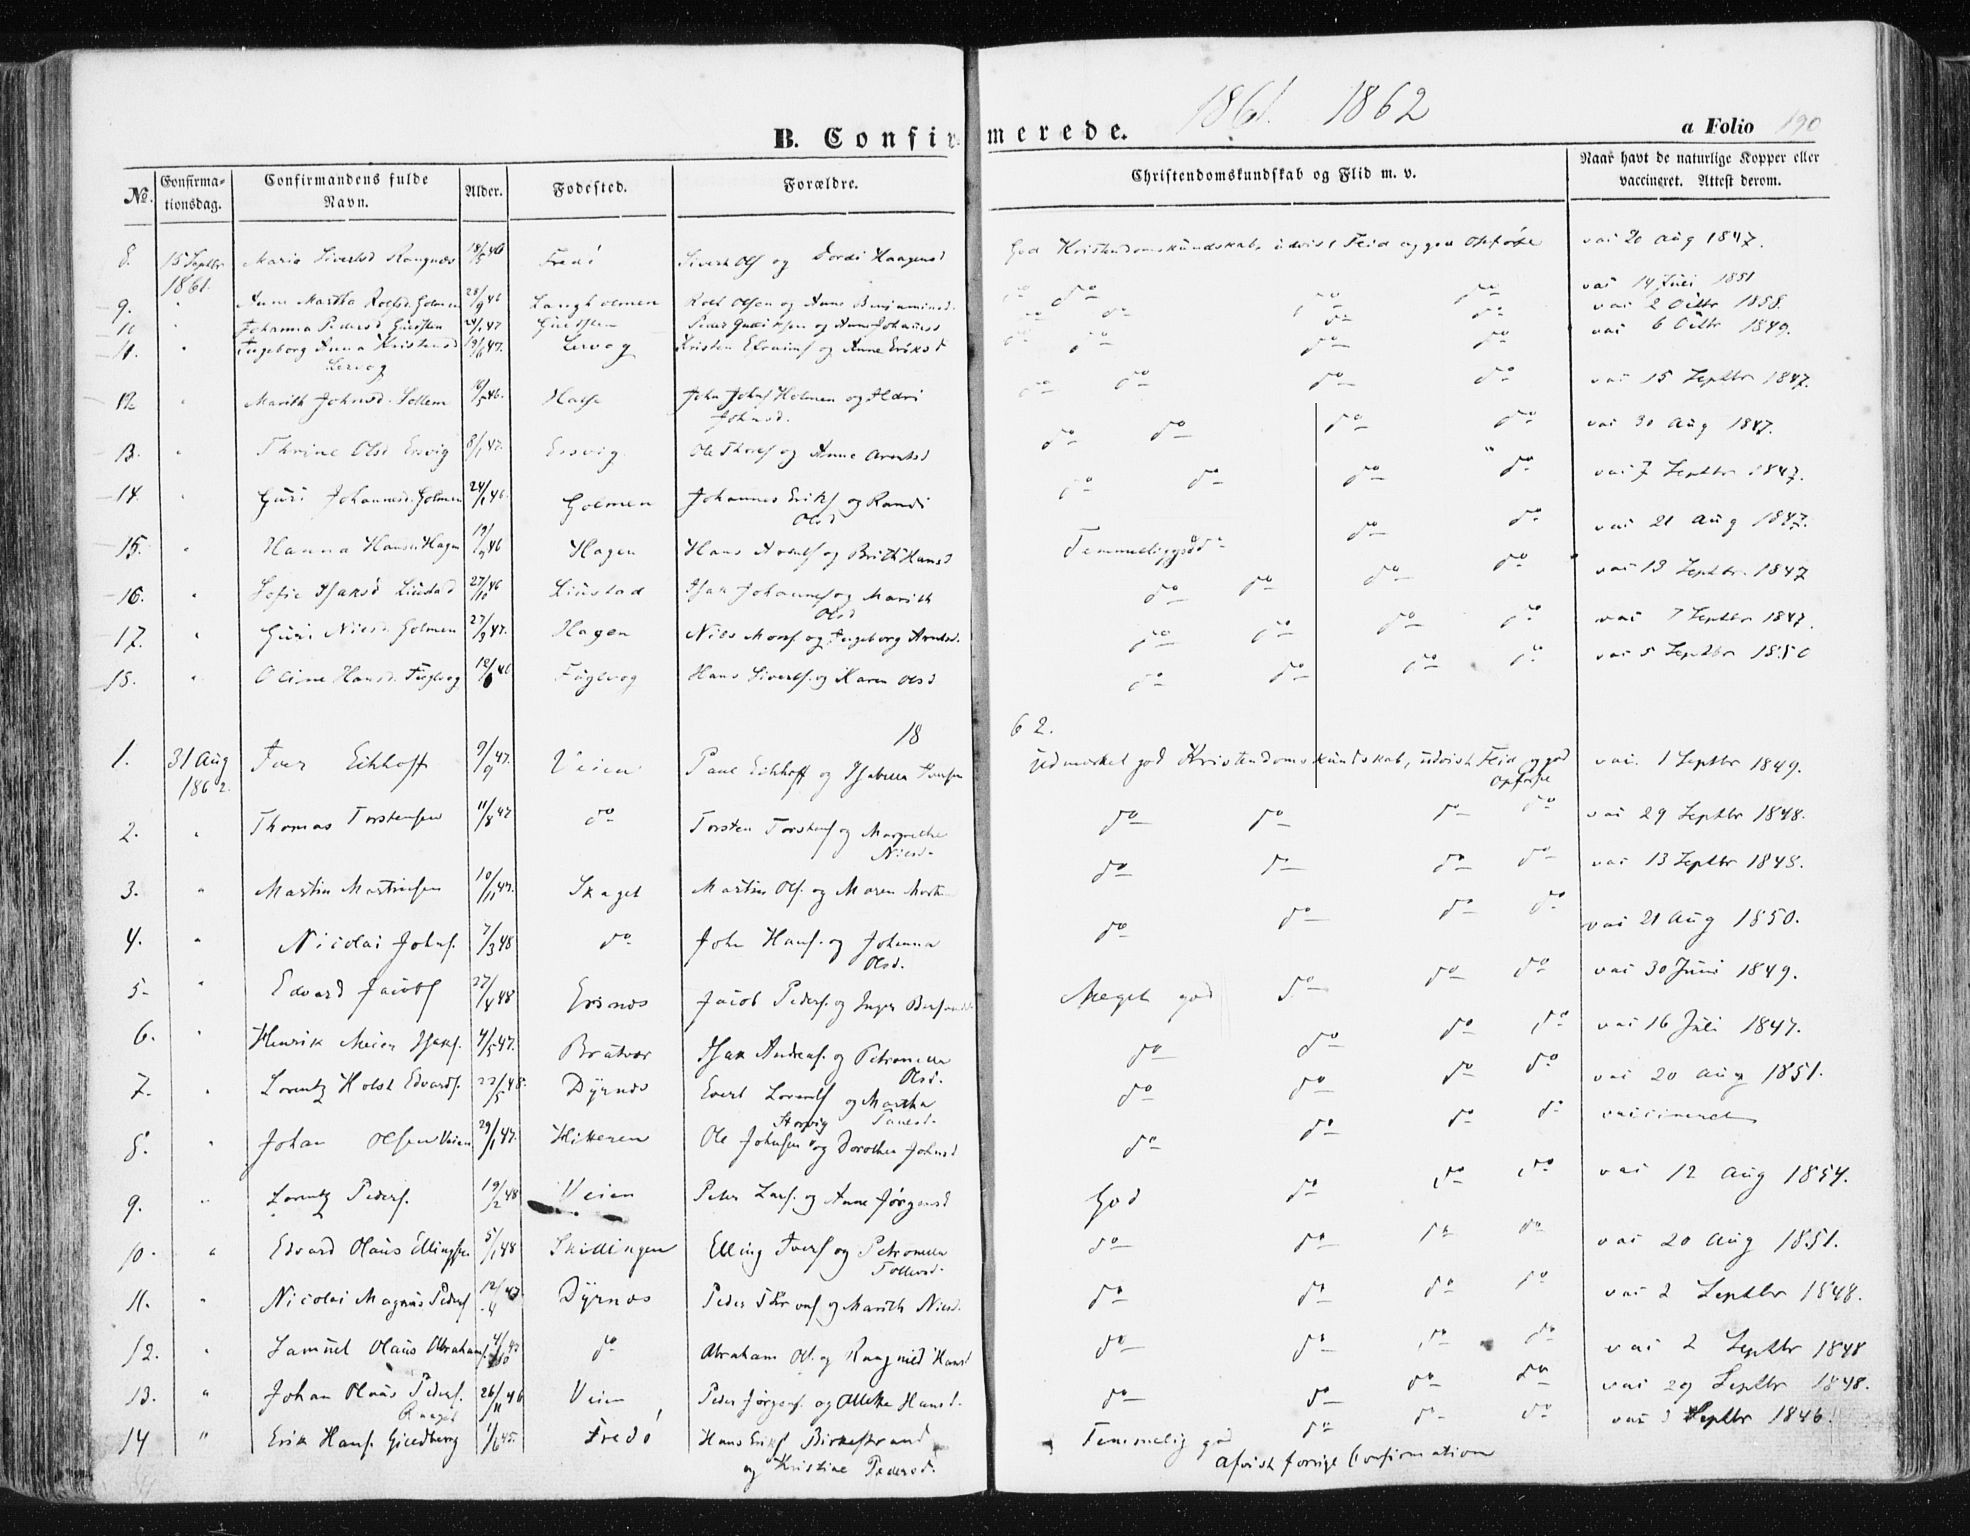 1861. 1862
B. Confirmerede.
a Folio 190
No. Confirmationsdag. Confirmandens fulde Navn. Alder. Fødested. Forældre. Christendomskundskab og Flid m. v. Naar havt de naturlige Kopper eller vaccineret. Attest derom.
8. 15 Septbr 1861. Maria Sivertsd Rangnæs 18/5 46 Fredö Sivert Ols og Dordi Haagensd God Kristendomskundskab, udvist Flid og god Opførse vac 20 Aug 1847.
9. " Anne Martha Roelsd. Holmen 28/9 46 Langholmen Roel Olsen og Anne Benjaminsd. do do do do vac 14 Juli 1851
10 " Johanna Pedersd 47 Peder og Anne Johansd do do do do vac 2 Octbr 1858.
11. " Ingeborg Anna Kristensd Lervog 19/6 47. Lervog Kristen og Anne Eriksd do do do do vac 6 Octbr 1849.
12 " Marith Johnsd. 46. Halse John Johns Holmen og Johnsd. do do do do vac 15 Septbr 1847.
13. " Thrine Olsd Ersvig 8/1 47. Ersvig Ole Thores og Anne Arentsd do do do do vac 30 Aug 1847.
14. " Guri Johannesd. Golmen 24/1 46. Golmen Johannes Eriks og Randi Olsd do do do do vac 7 Septbr 1847.
15. " Hanna Hansd. Hagen 19/9 46 Hagen Hans og Brith Hansd Temmelig god do do vac 21 Aug 1847.
16. " Sofie Isaksd Liustad 27/10 46 Liustad Isak Johannes og Marith Olsd do do do do vac 18 Septbr. 1847
17. " Guri Nilsd. Golmen 27/9 47. Hagen Nils Mons og Ingeborg Arntsd. do do do do vac 7 Septbr 1847.
18. " Oline Hansd. Fuglvog 46 Fuglvog Hans Siverts. og Karen Olsd do do do do vac 5 Septbr 1850
1862.
1. 31 Aug 1862. Iver Eikhoff 9/9 47. Veien Paul Eikhoff og Isabella Iversen Udmerket god Kristendomskundskab, udvist Flid og god Opførse vac. 1 Septbr 1849.
2. " Thomas Torstensen 11/8 47 do Torsten Torstens og Margrethe Nilsd. do do do do vac 29 Septbr 1848.
3. " Martin Martinsen 10/11 47. Skaget Martin Ols. og Maren do do do do vac 13 Septbr 1848.
4. " Nicolai Johns. 7/3 48 do John Hans. og Johanna Olsd. do do do do vac 21 Aug 1850.
5. " Edvard Jacobs 27/4 48 Ersnes Jacob Peders. og Inger Meget god do do do vac 30 Juni 1849.
6. " Henrik Meier Isaks. 4/5 47. Bratvær Isak Andreas. og Petronella Olsd. do do do do vac 16 Juli 1847.
7. " Lorentz Holst Edvards. 23/5 48. Dyrnes Evert Lorents og Martha do do do do vac 20 Aug 1851.
8. " Johan Olsen Veien 29/1 47. Hikeren Ole Johnsen Storvig og Dorothea Johnsd do do do do vaccineret
9. " Lorentz Peders. 19/2 48 Veien Peter Lars. og Anne Jørgensd God do do do vac 12 Aug 1854.
10. " Edvard Olaus Ellingsen 5/1 48 Skillingen Elling Ivers og Petronella Tollevsd. do do do do vac 20 Aug 1851.
11. " Nicolai Magnus Peders 12/4 47 Dyrnes Peder og Marith Nilsd. do do do do vac 2 Septbr 1848.
12. " Samuel Olaus Abrahams. 4/10 do Abraham Ols. og Raagnild Hansd do do do do vac 2 Septbr 1848
13. " Johan Olaus Peders. 26/11 46 Veien Peder Jørgens. og Hansd. do do do do vac 29 Septbr 1848.
14 " Erik Hans. 1/6 45. Fredö Hans Eriks Birkestrand og Kristine Pedersd. Temmelig god do do do vac 3 Septbr 1846.
afvist forrige Confirmation